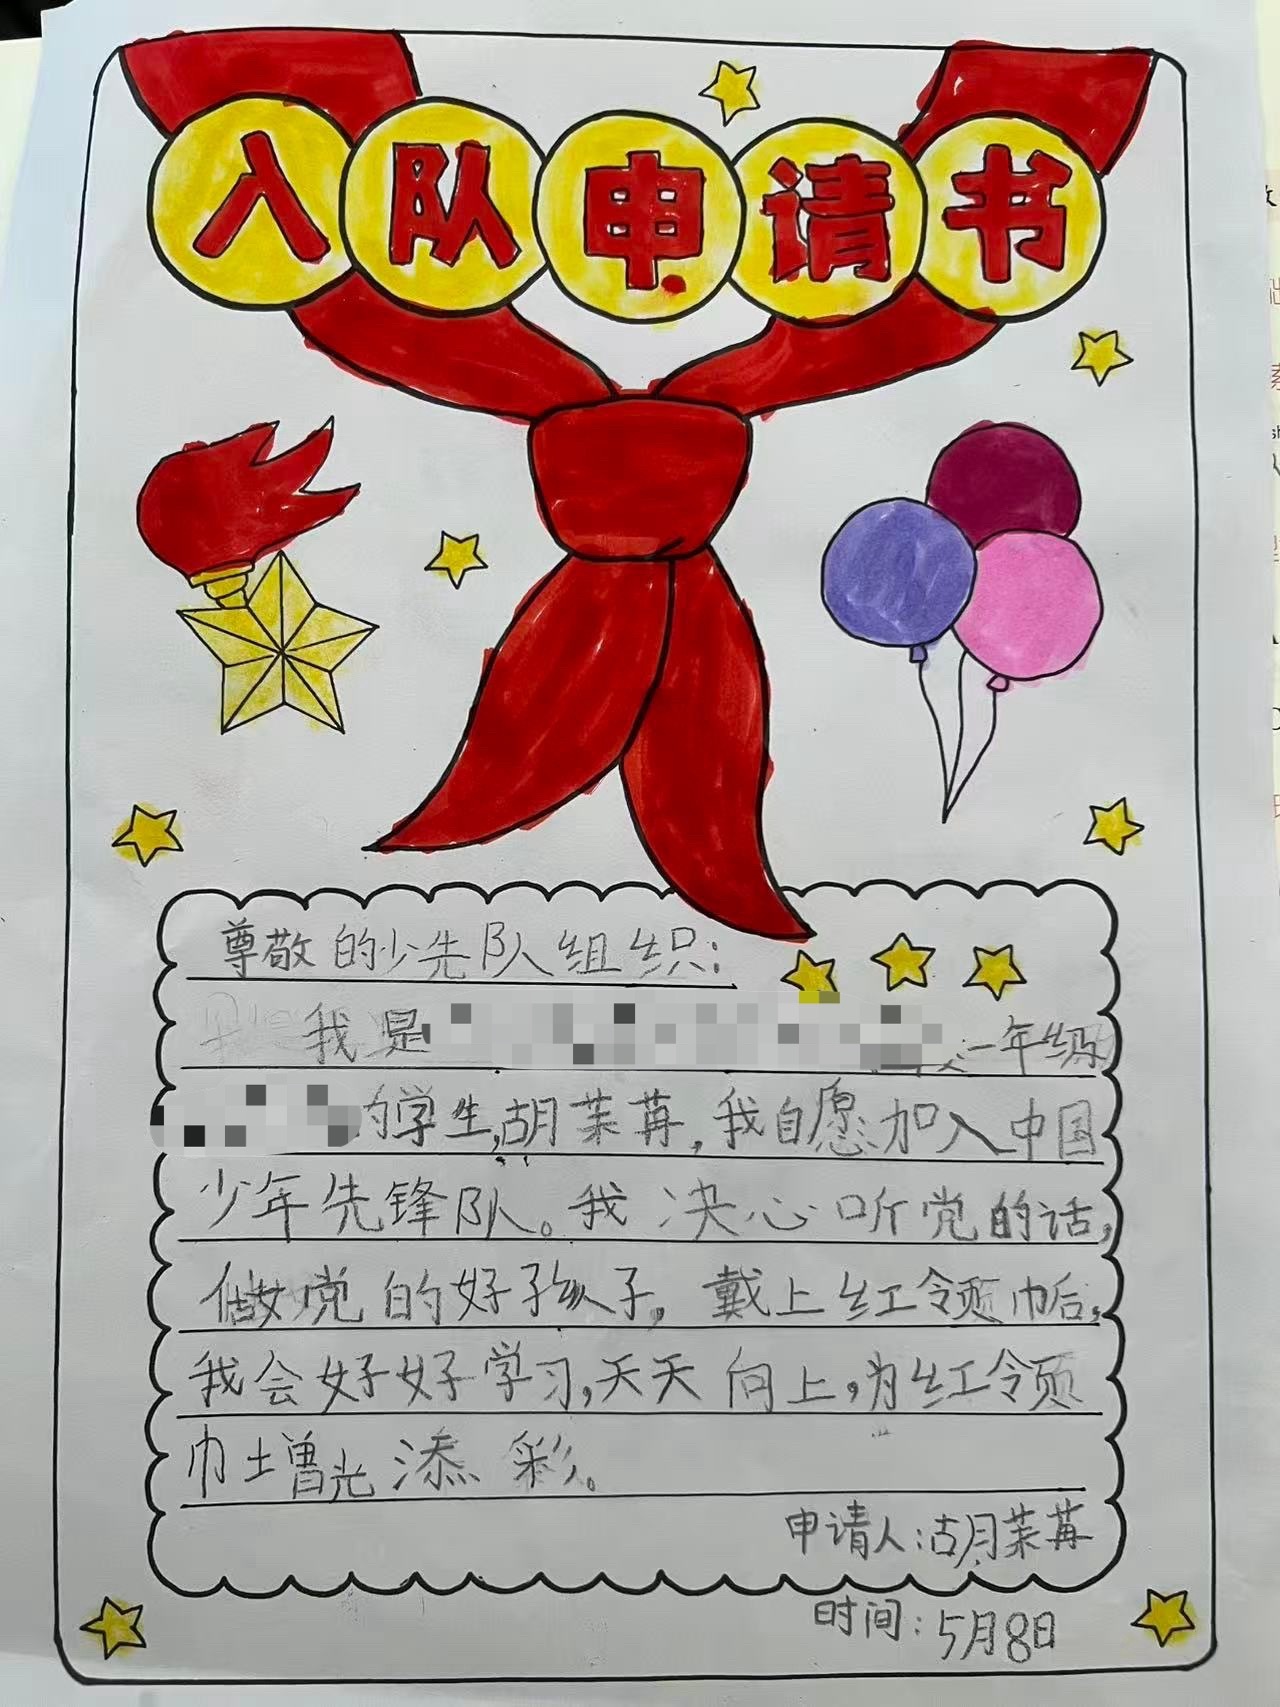 入队申请书
尊敬的少先队组织:
我是
一年级
的学生,胡茉苒,我自愿加入中国
少年先锋队。我决心听党的话,
做党的好孩子,戴上红领巾后,
我会好好学习,天天向上,为红领
巾增光添彩。
申请人:胡茉苒
时间:5月8日